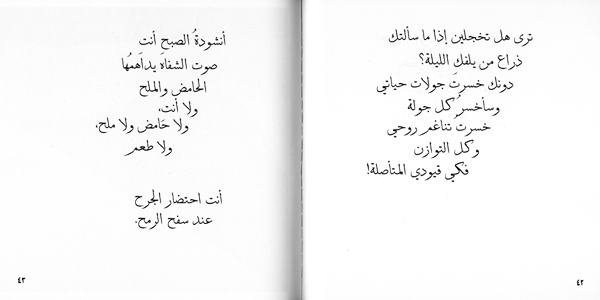 ترى هل تخجلين إذا ما سألتك
ذراع من يلفك الليلة؟
دونك خسرتَ جولات حياتي
وسأخسرُ كل جولة
خسرتُ تناغم روحي
وكل التوازن
فكي قيودي المتأصلة!
٤٢
أنشودةُ الصبح أنت
صوت الشفاه يداهمُها
الحامض والملح
ولا أنت،
ولا حَامض ولا ملح،
ولا طعم
أنت احتضار الجرح
عند سفح الرمح.
٤٣